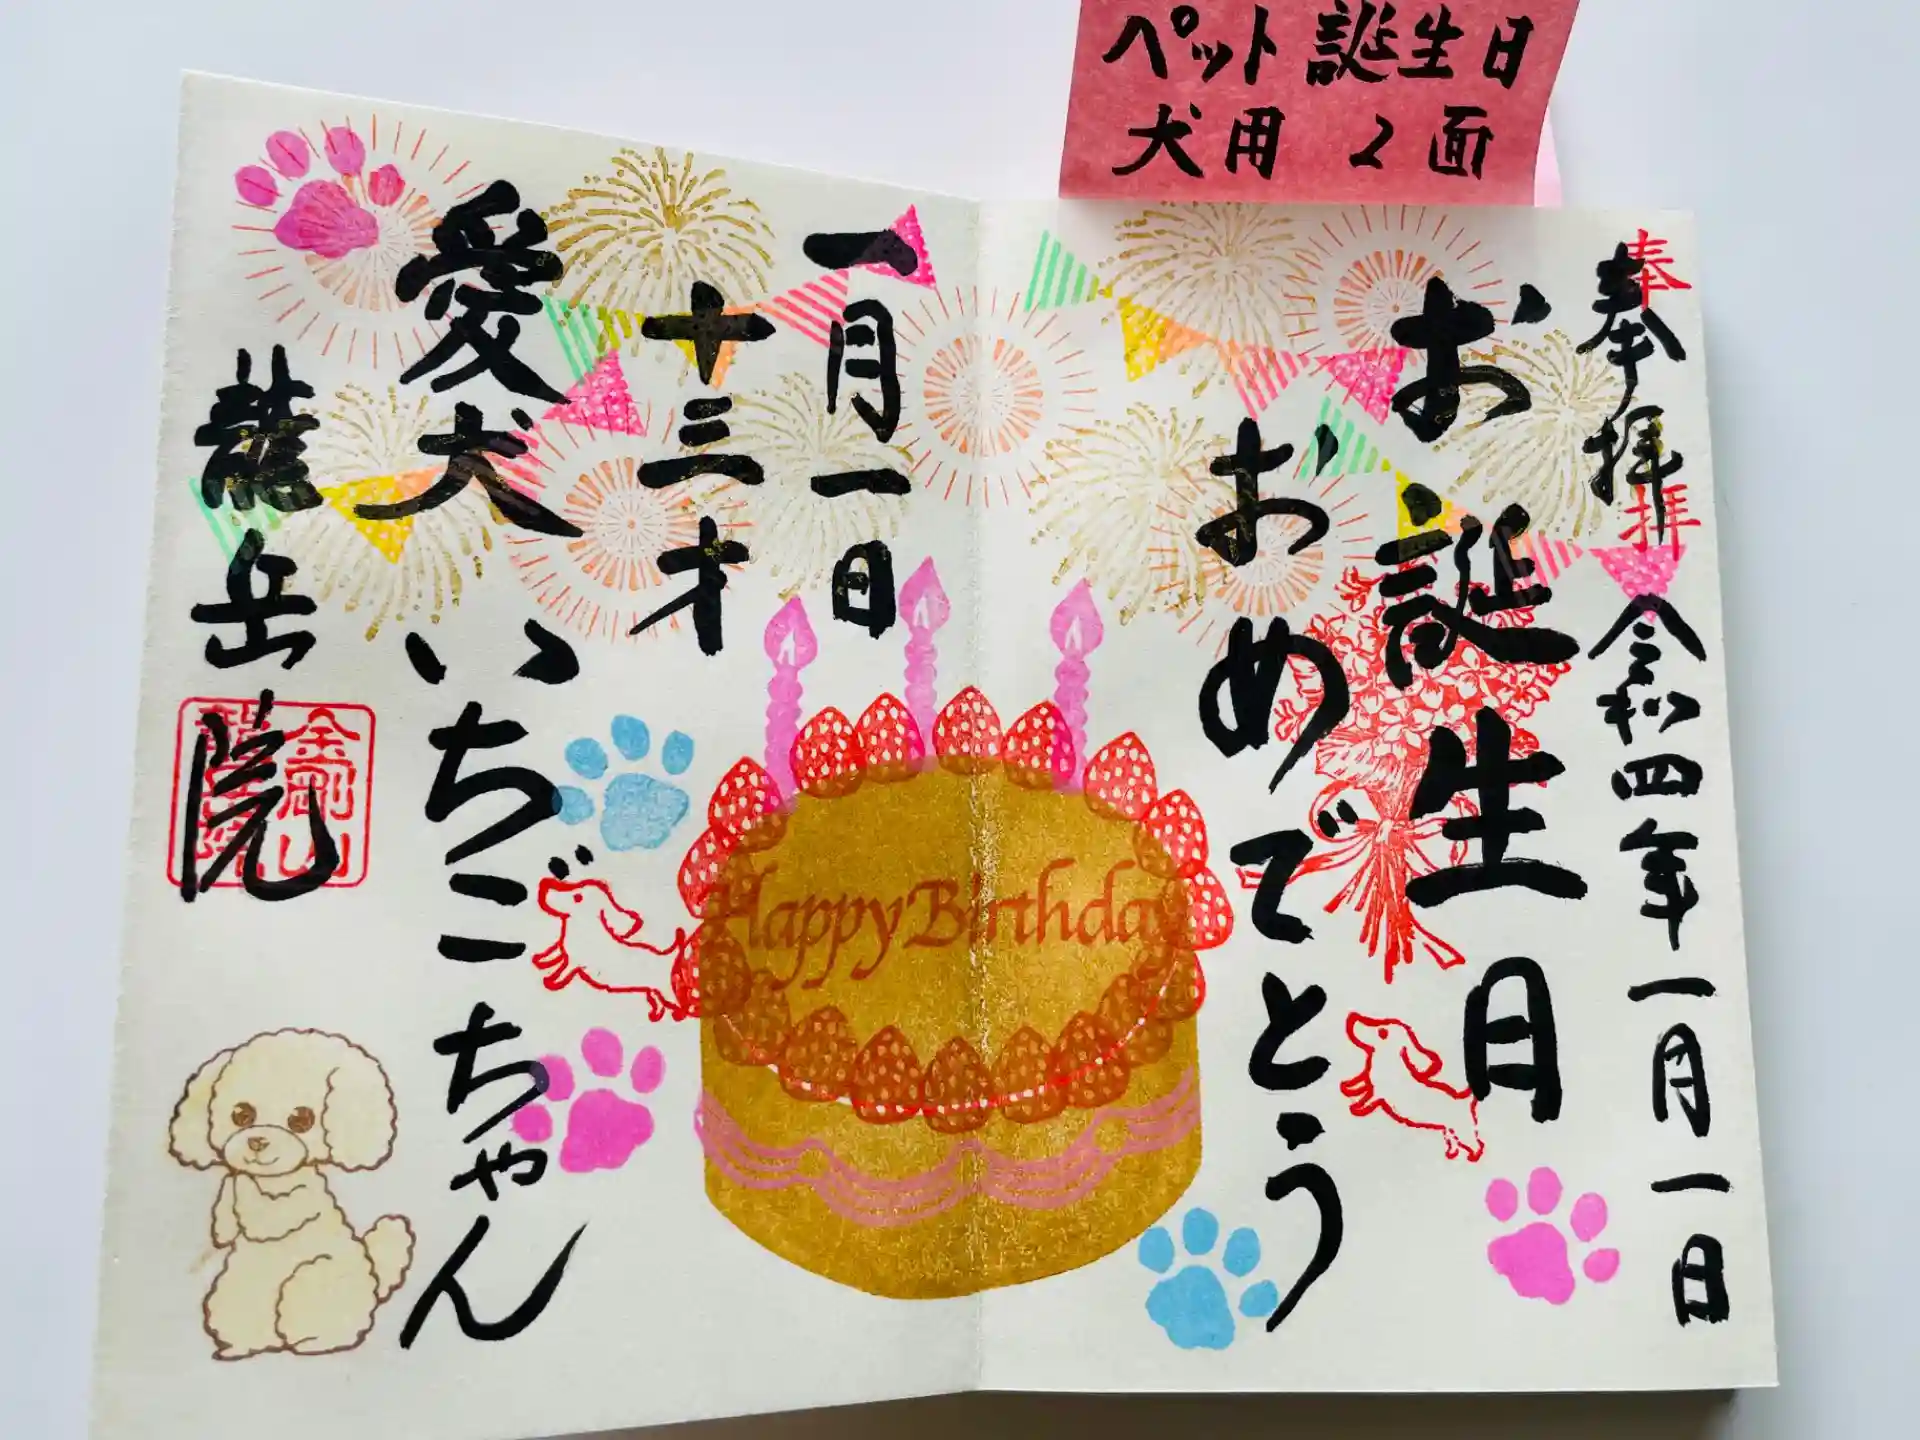 ペット誕生日
犬用 2面
奉拝
奉拝 令和四年一月一日
お誕生日
おめでとう
一月一日
十三才
愛犬 いちごちゃん
龍岳院
金剛山
Happy Birthday